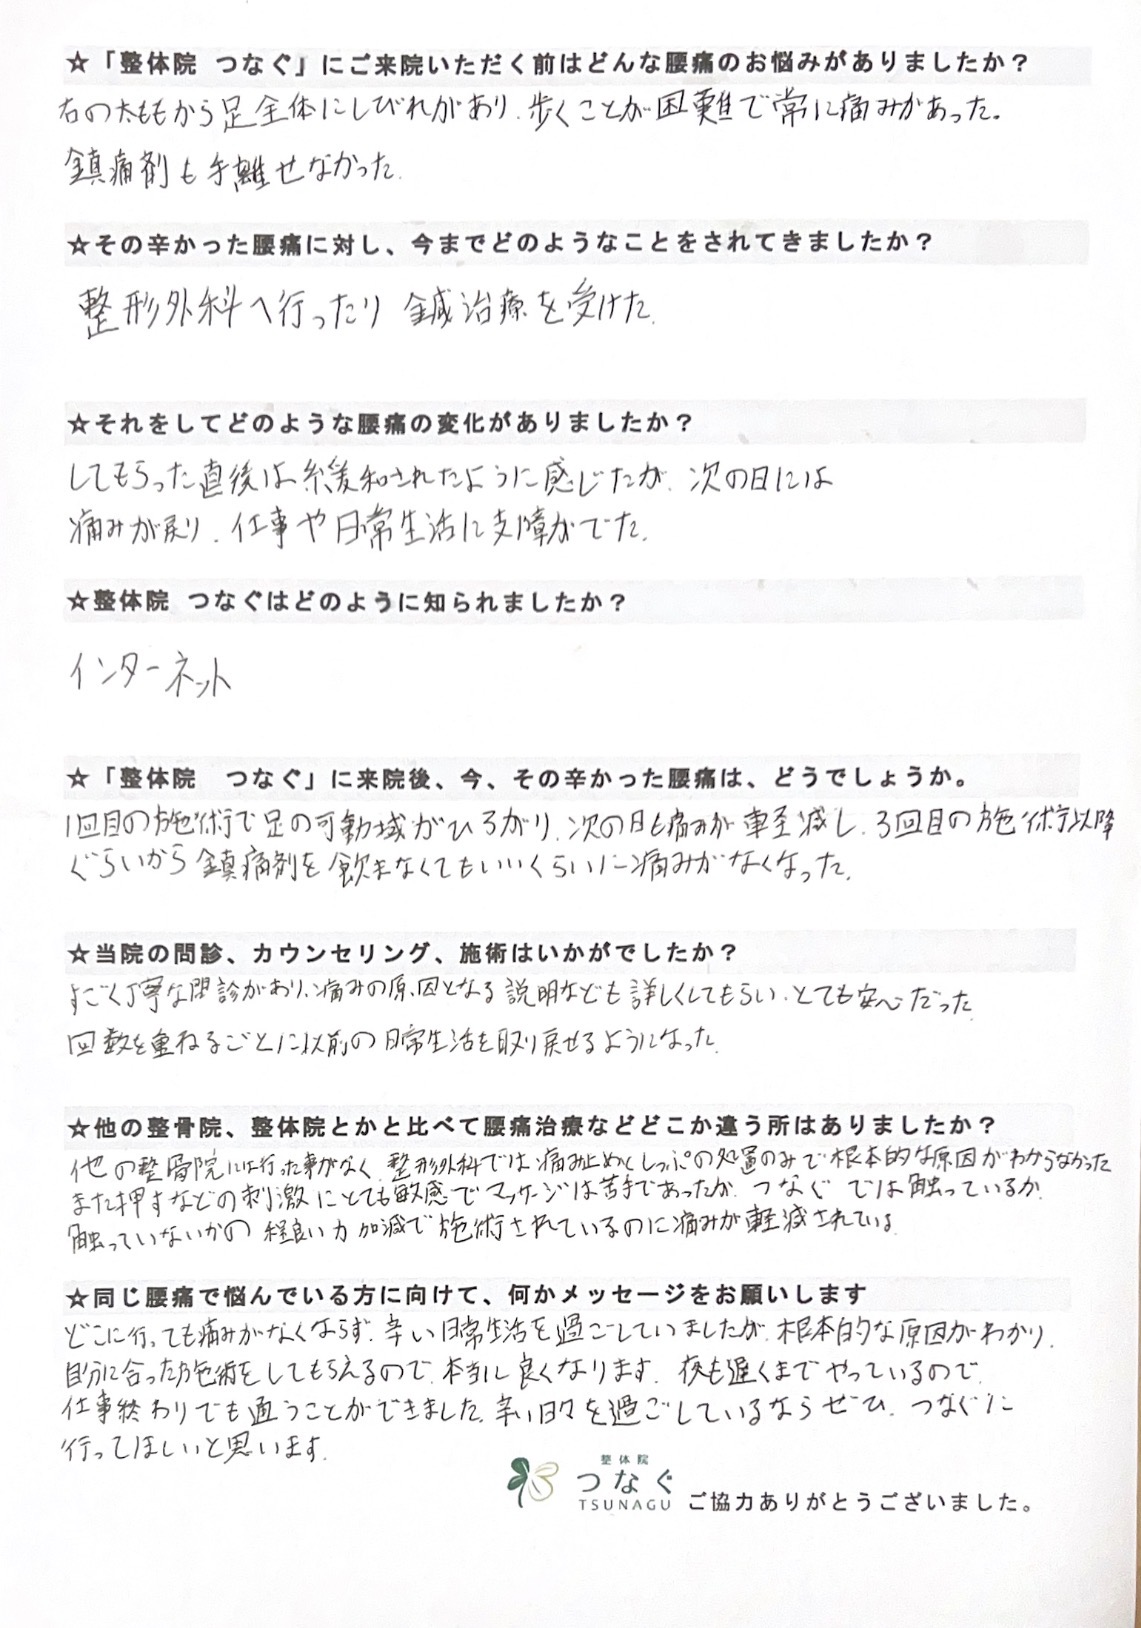 ☆「整体院 つなぐ」にご来院いただく前はどんな腰痛のお悩みがありましたか？
右の太ももから足全体にしびれがあり、歩くことが困難で常に痛みがあった。
鎮痛剤も手離せなかった。
☆その辛かった腰痛に対し、今までどのようなことをされてきましたか？
整形外科へ行ったり 鍼治療を受けた。
☆それをしてどのような腰痛の変化がありましたか？
してもらった直後は緩和されたように感じたが、次の日には
痛みが戻り、仕事や日常生活に支障がでた。
☆整体院 つなぐはどのように知られましたか？
インターネット
☆「整体院　つなぐ」に来院後、今、その辛かった腰痛は、どうでしょうか。
1回目の施術で足の可動域がひろがり、次の日も痛みが軽減し、3回目の施術以降
ぐらいから鎮痛剤を飲まなくてもいいくらいに痛みがなくなった。
☆当院の問診、カウンセリング、施術はいかがでしたか？
すごく丁寧な問診があり、痛みの原因となる説明なども詳しくしてもらい、とても安心だった
回数を重ねるごとに以前の日常生活を取り戻せるようになった。
☆他の整骨院、整体院とかと比べて腰痛治療などどこか違う所はありましたか？
他の整骨院には行った事がなく、整形外科では痛み止めとしっぷの処置のみで根本的な原因がわからなかった
また押すなどの刺激にとても敏感でマッサージは苦手であったが、つなぐ では触っているか、
触っていないかの 程良い力加減で施術されているのに痛みが軽減されている。
☆同じ腰痛で悩んでいる方に向けて、何かメッセージをお願いします
どこに行っても痛みがなくならず、辛い日常生活を過ごしていましたが、根本的な原因がわかり、
自分に合った施術をしてもらえるので、本当に良くなります。夜も遅くまでやっているので、
仕事終わりでも通うことができました。辛い日々を過ごしているならぜひ、つなぐに
行ってほしいと思います。
整体院
つなぐ
TSUNAGU ご協力ありがとうございました。